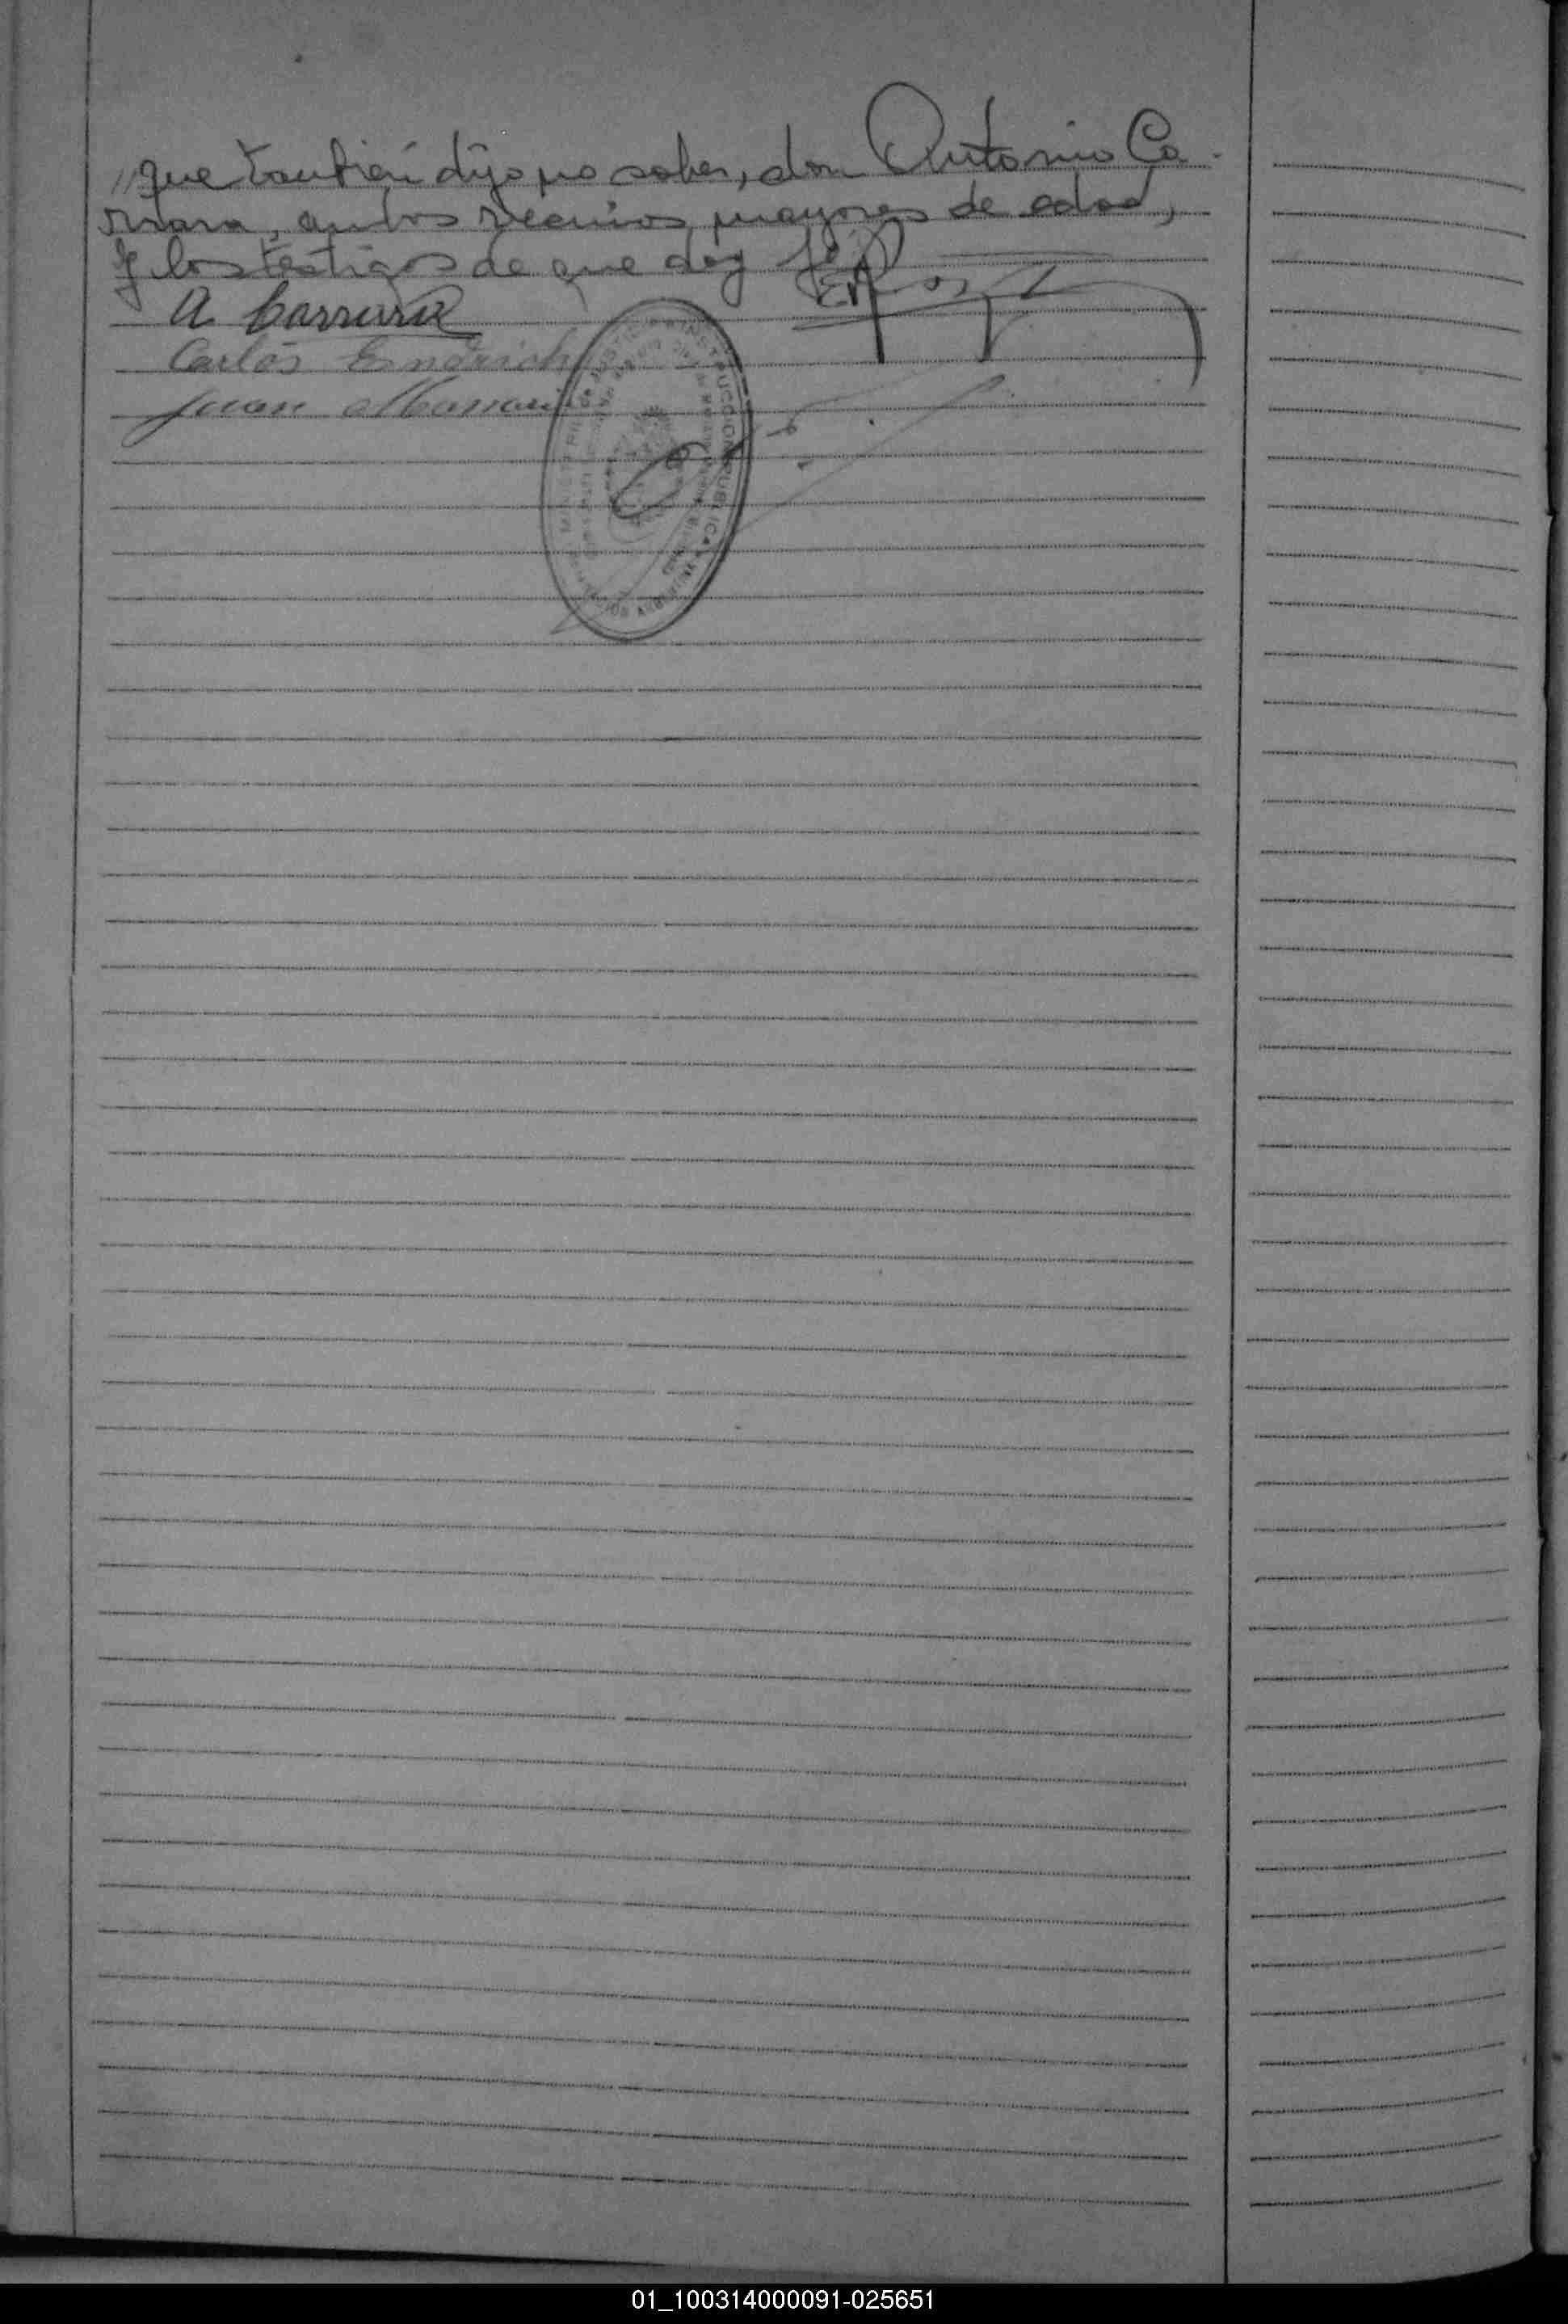 "que tambien dijo no saber, don Antonio Ca-
rrara, ambos vecinos, mayores de edad,
y los testigos de que doy fé
A Carrara
Carlos Endrich
Juan
INSTRUCCION PUBLICA
01_100314000091-025651